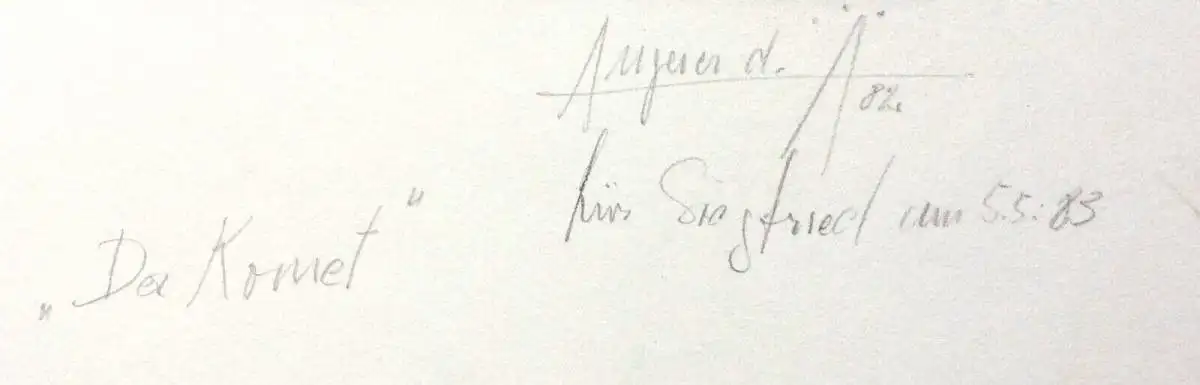 Angerer d. Ä
82
für Siegfried am 5.5.83
„Der Komet“